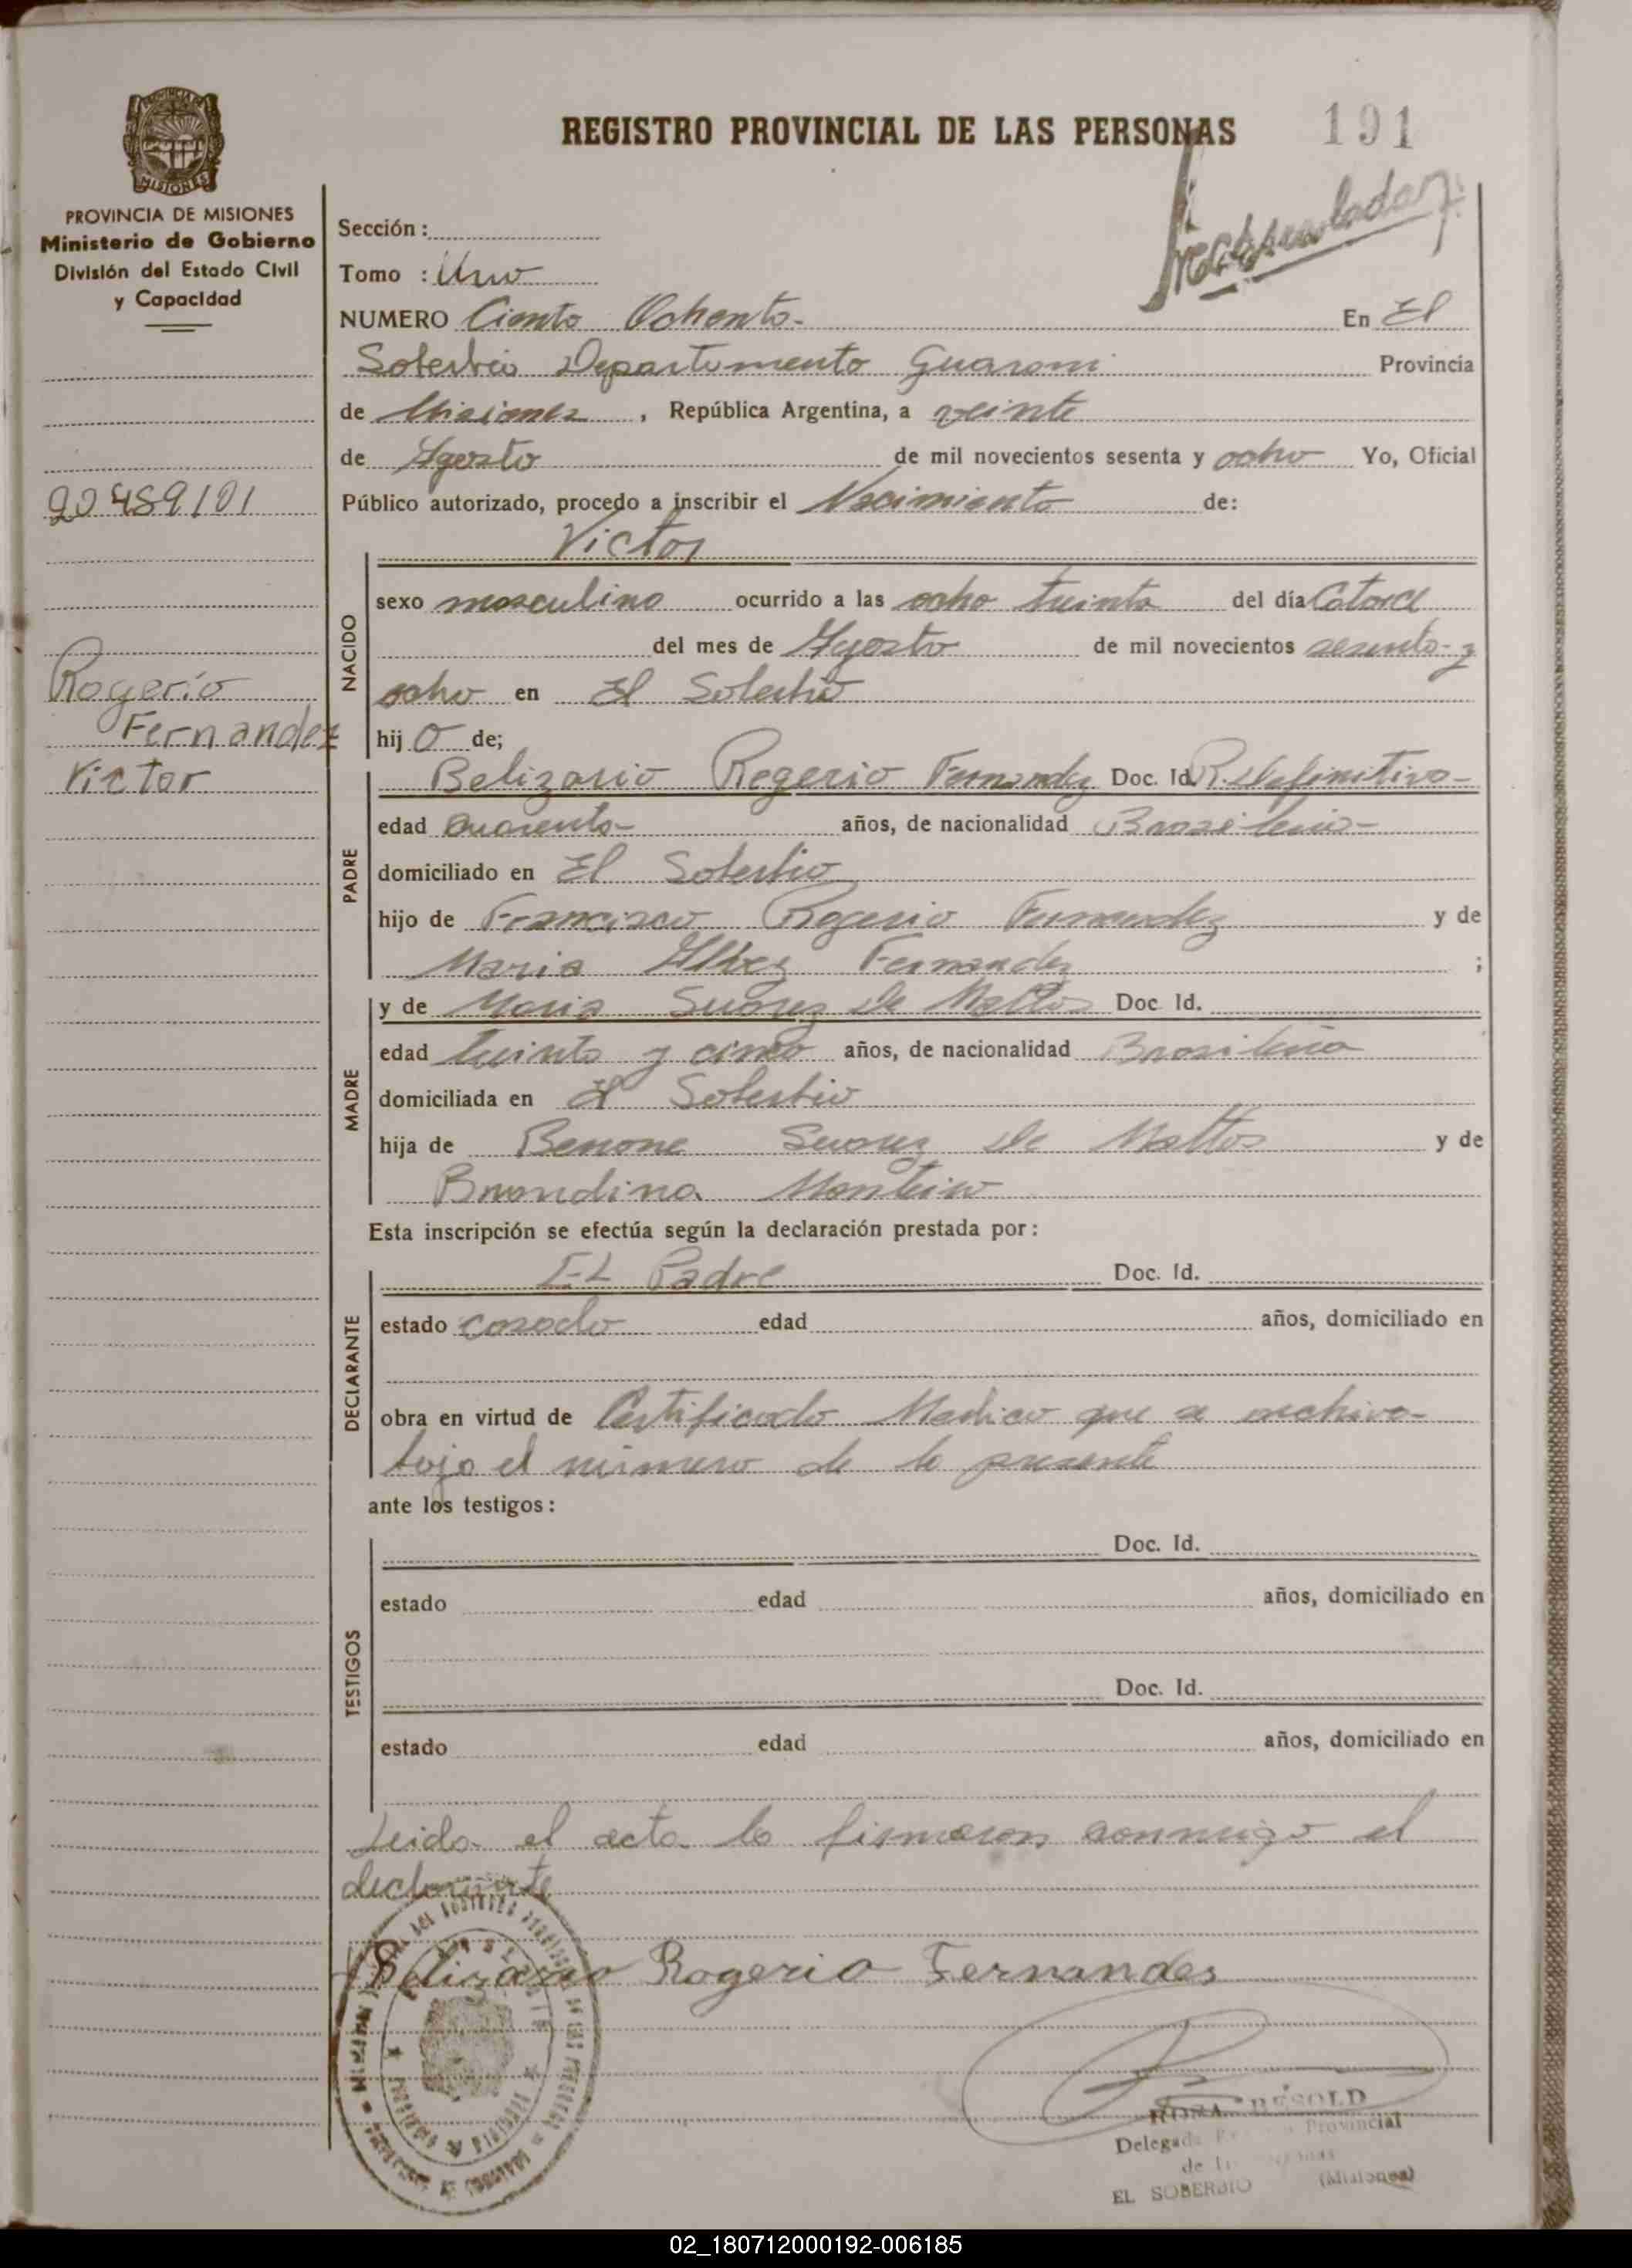 REGISTRO PROVINCIAL DE LAS PERSONAS
191
MISIONES
PROVINCIA DE MISIONES
Ministerio de Gobierno
División del Estado Civil
y Capacidad
Sección :
Tomo : Uno
NUMERO Ciento Ochenta- En El
Soberbio Departamento Guarani Provincia
de Misiones , República Argentina, a veinte
de Agosto de mil novecientos sesenta y ocho Yo, Oficial
20489101
Público autorizado, procedo a inscribir el Nacimiento de:
Victor
NACIDO
sexo masculino ocurrido a las ocho treinta del día Catorce
del mes de Agosto de mil novecientos sesenta y
ocho en El Soberbio
hij o de;
Rogerio
Fernandez
Victor
PADRE
Belizario Rogerio Fernandez Doc. Id. R. definitivo-
edad cuarenta- años, de nacionalidad Brasileño-
domiciliado en El Soberbio
hijo de Francisco Rogerio Fernandez y de
Maria Fernandez ;
MADRE
y de Maria Suarez de Mattos Doc. Id.
edad treinta y cinco años, de nacionalidad Brasileña
domiciliada en El Soberbio
hija de Benone Suarez de Mattos y de
Monteiro
Esta inscripción se efectúa según la declaración prestada por :
DECLARANTE
EL Padre Doc. Id.
estado casado edad años, domiciliado en
obra en virtud de Certificado Medico que se archiva-
bajo el número de la presente
ante los testigos :
TESTIGOS
Doc. Id.
estado edad años, domiciliado en
Doc. Id.
estado edad años, domiciliado en
Leida el acta la firmaron conmigo el
declarante
Belizario Rogerio Fernandes
ROSA BESOLD
Provincial
EL SOBERBIO (Misiones)
02_180712000192-006185